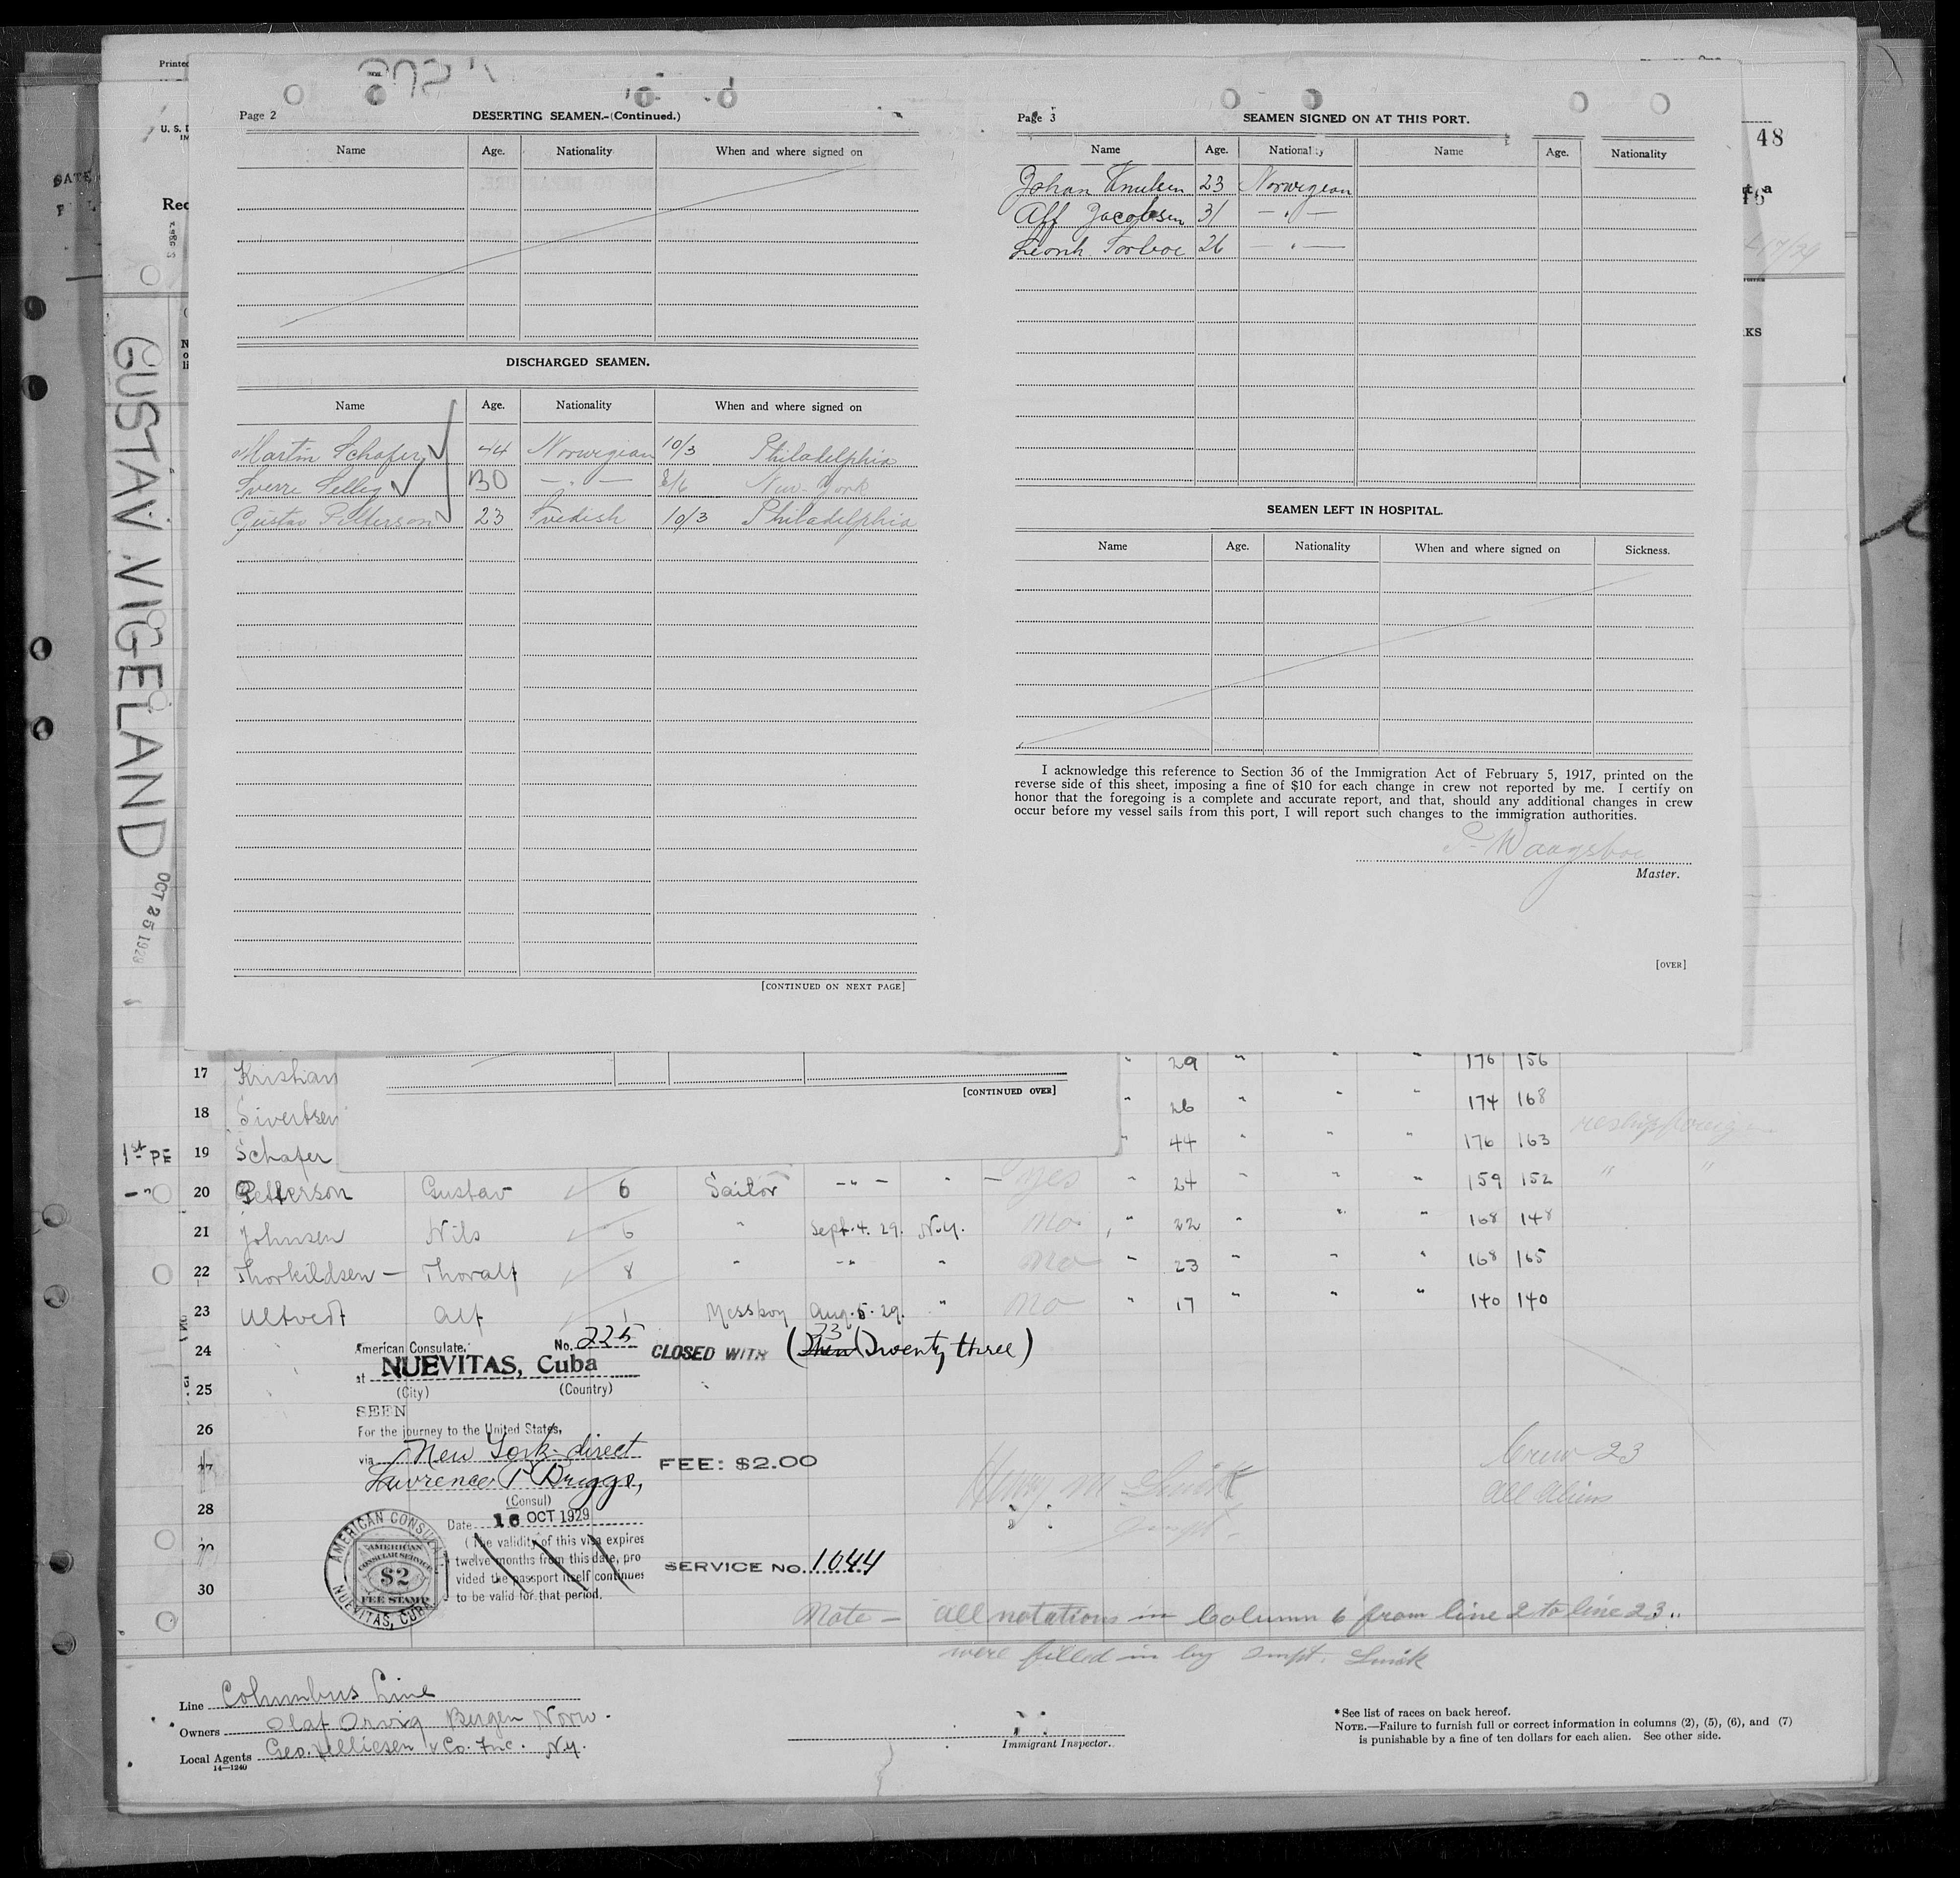 Printed
U. S. D
IM
Rec
48
KS
GUSTAV VIGELAND
OCT 25 1929
Page 2
DESERTING SEAMEN.-(Continued.)
Name Age. Nationality When and where signed on
DISCHARGED SEAMEN.
Name Age. Nationality When and where signed on
Martin Schafer 44 Norwegian 10/3 Philadelphia
Sverre Selleg 30 — " — 8/6 New-York
Gustav Petterson 23 Svedish 10/3 Philadelphia
[CONTINUED ON NEXT PAGE]
Page 3
SEAMEN SIGNED ON AT THIS PORT.
Name Age. Nationality Name Age. Nationality
Johan Knutsen 23 Norwegian
Alf Jacobsen 31 — " —
Leonh. Torboe 26 — " —
SEAMEN LEFT IN HOSPITAL.
Name Age. Nationality When and where signed on Sickness.
I acknowledge this reference to Section 36 of the Immigration Act of February 5, 1917, printed on the
reverse side of this sheet, imposing a fine of $10 for each change in crew not reported by me. I certify on
honor that the foregoing is a complete and accurate report, and that, should any additional changes in crew
occur before my vessel sails from this port, I will report such changes to the immigration authorities.
Waagsboe
Master.
[OVER]
[CONTINUED OVER]
17 Kristian " 29 " " " 176 156
18 Sivertsen " 26 " " " 174 168
1st PE 19 Schafer " 44 " " " 176 163 reship foreign
— " 20 Petterson Gustav 6 Sailor — " — " — yes " 24 " " " 159 152 " "
21 Johnsen Nils 6 " Sept. 4. 29. N.Y. no " 22 " " " 168 148
22 Thorkildsen — Thoralf 8 " — " " no " 23 " " " 168 165
23 Ultvedt Alf 1 Messboy Aug. 5. 29. " no " 17 " " " 140 140
24
25
26
27
28
29
30
American Consulate. No. 225
at NUEVITAS, Cuba
(City) (Country)
SEEN
For the journey to the United States,
via New York direct
Lawrence P Briggs,
(Consul)
Date 16 OCT 1929
(The validity of this visa expires
twelve months from this date, pro
vided the passport itself continues
to be valid for that period.
CLOSED WITH 23 (Twenty three)
FEE: $2.00
SERVICE No. 1044
AMERICAN CONSULATE
NUEVITAS, CUBA
AMERICAN
CONSULAR SERVICE
$2
FEE STAMP
Crew 23
All Aliens
Note — All notations in Column 6 from line 2 to line 23
were filled in by Inspt.
Line Columbus Line
Owners Olaf Orvig Bergen Norw.
Local Agents Geo. Tellicsen & Co. Inc. N.Y.
14—1240
Immigrant Inspector.
*See list of races on back hereof.
NOTE.—Failure to furnish full or correct information in columns (2), (5), (6), and (7)
is punishable by a fine of ten dollars for each alien. See other side.